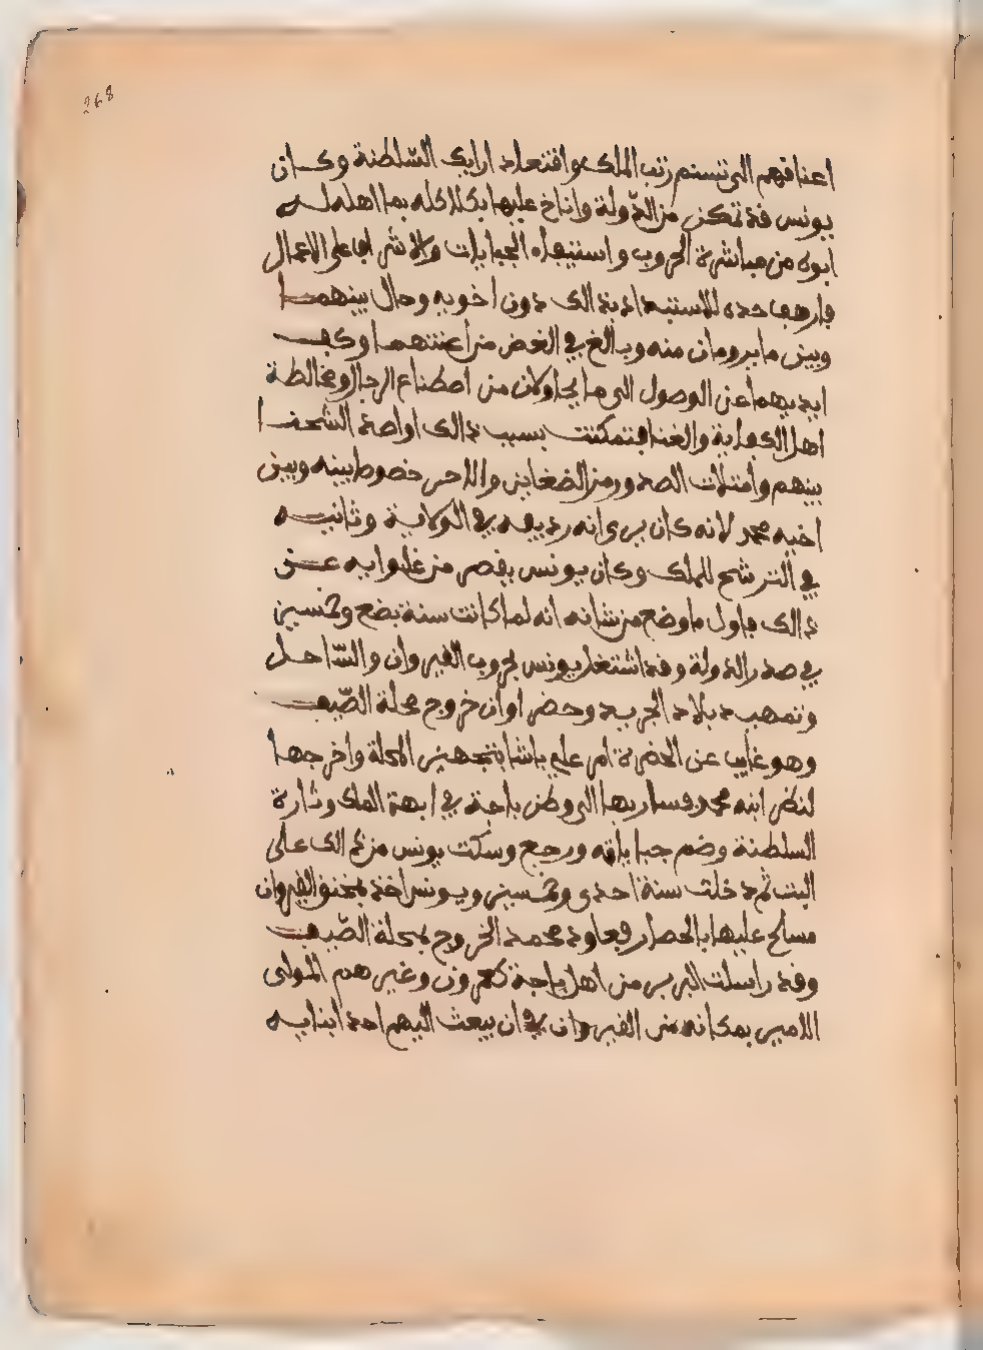 268
اعناقهم الى تسنم رتب الملك واقتعاد ارايك السّلطنة وكان
يونس قد تمكن من الدّولة واناخ عليها بكلاكله بما اهله له
ابوه من مباشرة الحروب واستيفاء الجبايات والاشراف على الاعمال
فارهف حده للاستبداد بذالك دون اخويه وحال بينهما
وبين ما يرومان منه وبالغ في الغض من اعنتهما وكف
ايديهما عن الوصول الى ما يحاولان من اصطناع الرجال ومخالطة
اهل الكفاية والغنا فتمكنت بسبب ذالك اواصد الشحنا
بينهم وامتلات الصدور من الضغاين والاحن خصوصا بينه وبين
اخيه محمد لانه كان يرى انه رديفه في الولاية وثانيه
في الترشح للملك وكان يونس يقصر من غلوايه عن
ذالك فاول ما وضع من شانه انه لما كانت سنة بضع وخمسين
في صدر الدولة وقد اشتغل يونس بحروب القيروان والسّاحل
وتمهيد بلاد الجريد وحضر اوان خروج محلة الصّيف
وهو غايب عن الحضرة امر علي باشا بتجهيز المحلة واخرجها
لنظر ابنه محمد فسار بها الى وطن باجة في ابهة الملك وشارة
السلطنة وضم جباياته ورجع وسكت يونس من ذالك على
البث ثم دخلت سنة احدى وخمسين ويونس اخذ بمخنق القيروان
مسالح عليها بالحصار فعاود محمد الخروج بمحلة الصّيف
وقد راسلت البربر من اهل باجة كعمرون وغيرهم المولى
الامير بمكانه من القيروان في ان يبعث اليهم احد ابنايه